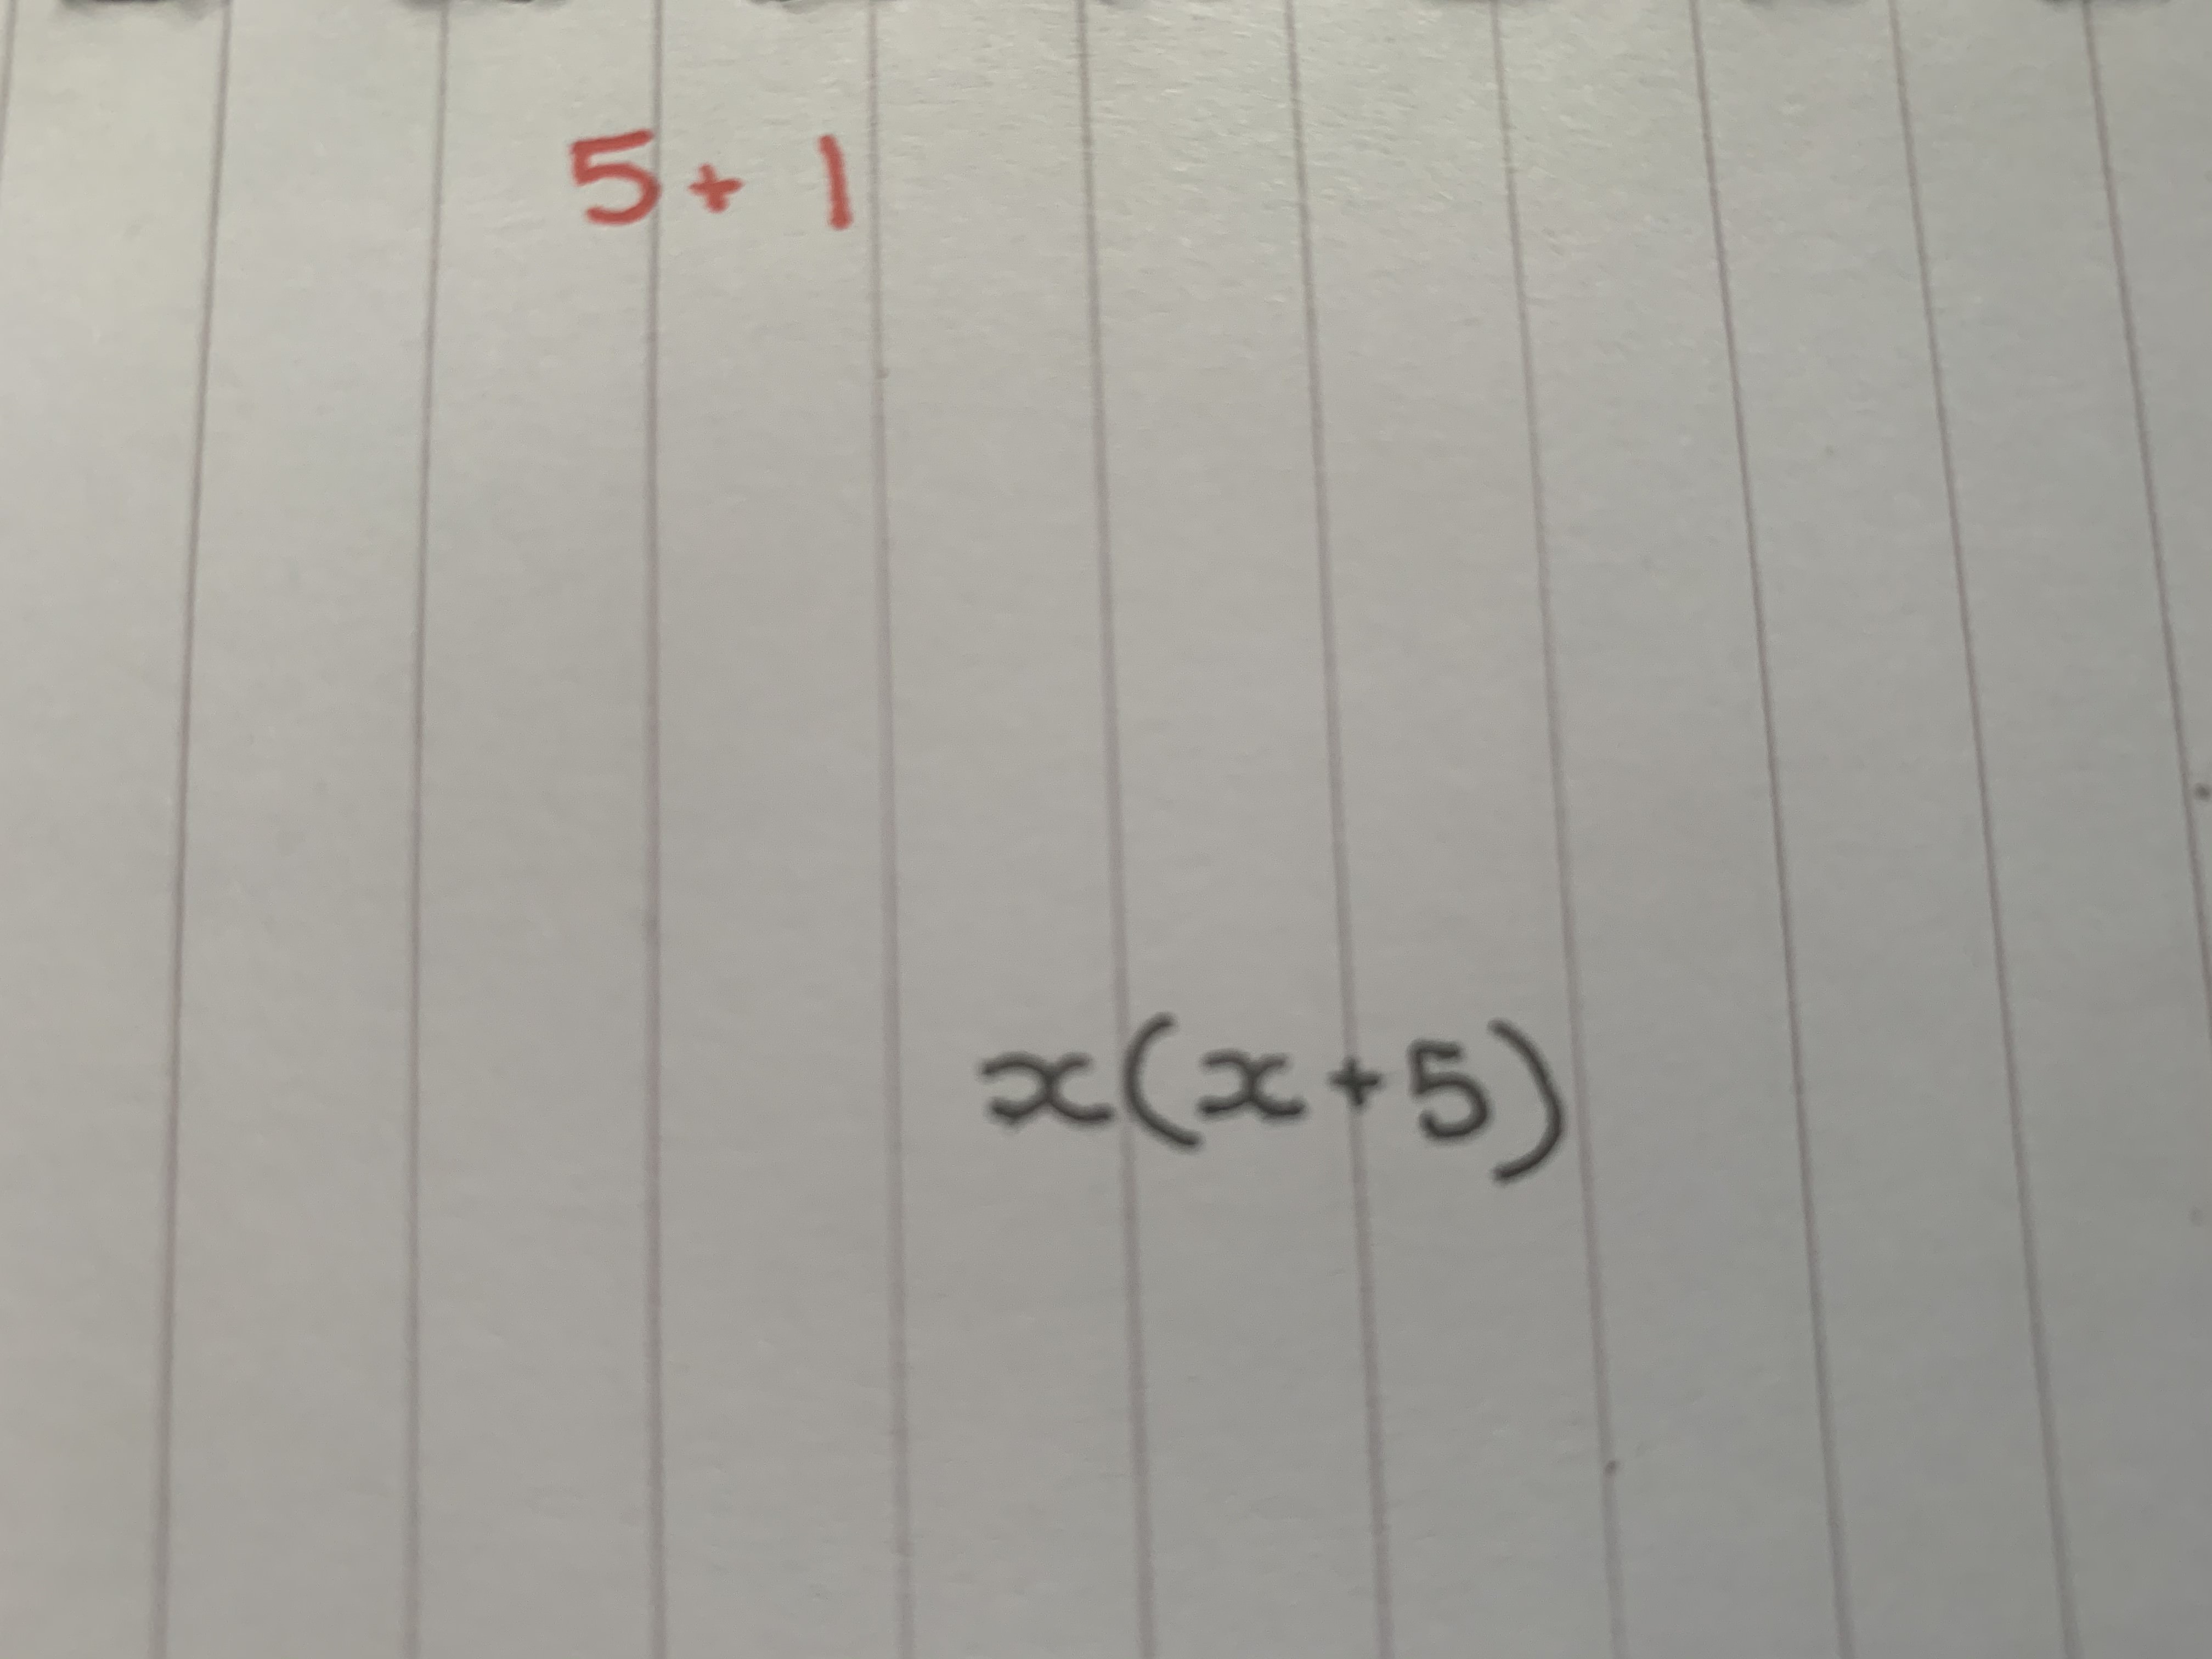 5 + 1
x(x + 5)